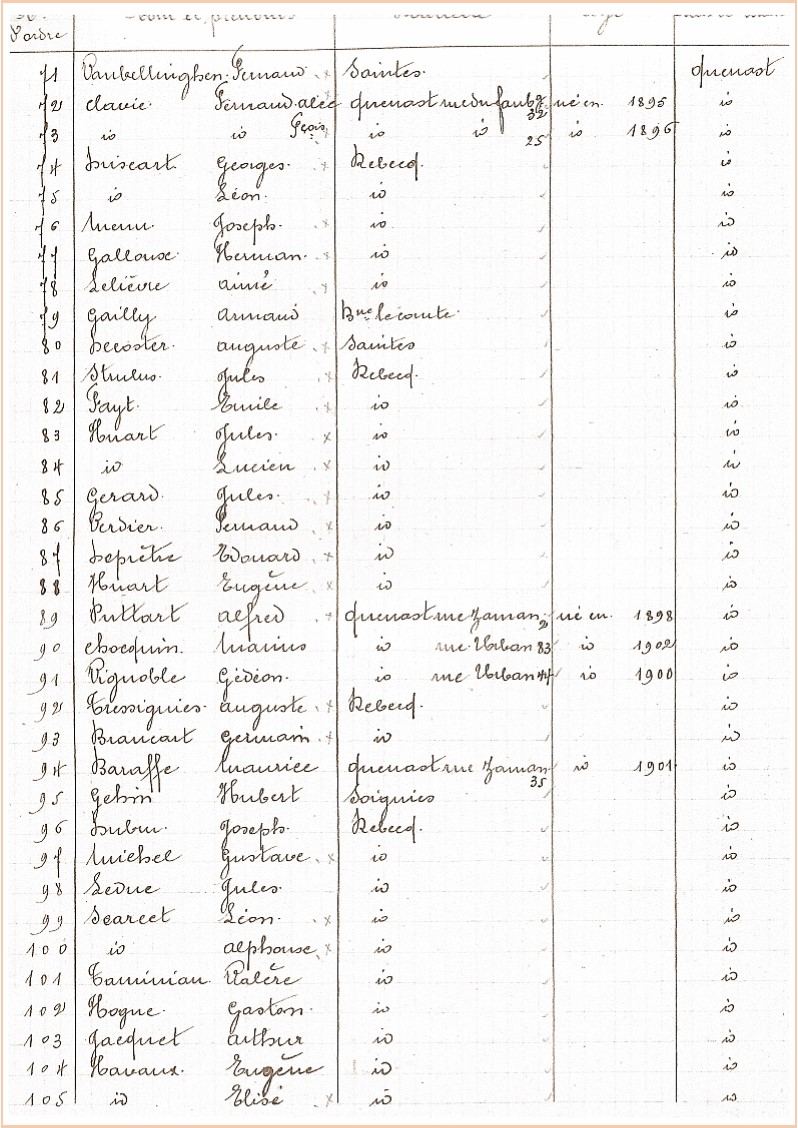 d'ordre
71 Vanbellinghen. Fernand x Saintes. quenast
72 clavie. Fernand. alex quenast rue du faubg 32 né en. 1895 id
73 id id Fçois id id 25 id 1896 id
74 Driscart. Georges. x Rebecq. id
75 id Léon. id id
76 Menu. Joseph. x id. id
77 Galloux. Herman. x id id
78 Lelièvre aimé x id id
79 Gailly armand Bne lecomte. id
80 Decoster. auguste x Saintes id
81 Strulus. Jules x Rebecq. id
82 Fayt. Emile x id id
83 Huart Jules. x id id
84 id Lucien x id id
85 Gerard. Jules. x id id
86 Verdier. Fernand x id id
87 Deprêtre Edouard x id id
88 Huart Eugène x id id
89 Puttart alfred x quenast rue Zaman 2 né en. 1898 id
90 chocquin. Marius id rue Urban 83 id 1902 id
91 Vignoble Gédéon. id rue Urban 44 id 1900 id
92 Tressignies. auguste x Rebecq. id
93 Brancart Germain x id id
94 Baraffe Maurice quenast rue Zaman 35 id 1901 id
95 Gehin Hubert Soignies id
96 Joseph. Rebecq. id
97 Michel Gustave x id id
98 Leduc Jules. id id
99 Scarcet Léon. x id id
100 id alphonse x id id
101 Taminiau. Valère id id
102 Hogne. Gaston. id id
103 Jacquet arthur id id
104 Havaux. Eugène id id
105 id Elisé x id id